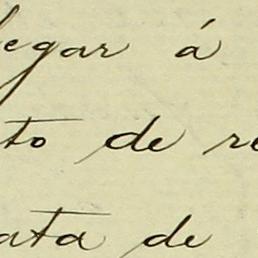 legar á
to de re
ata de